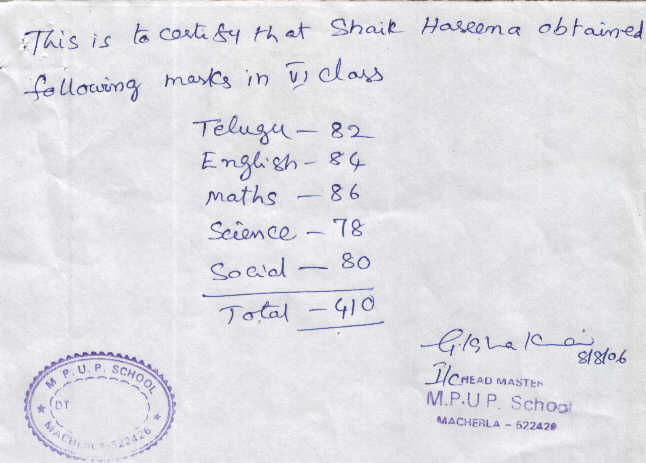 This is to certify that Shaik Haseena obtained
following marks in VI class
Telugu - 82
English - 84
Maths - 86
Science - 78
Social - 80
Total - 410
8/8/06
I/C HEAD MASTER
M.P.U.P. School
MACHERLA - 522426
M.P.U.P. SCHOOL
MACHERLA-522426